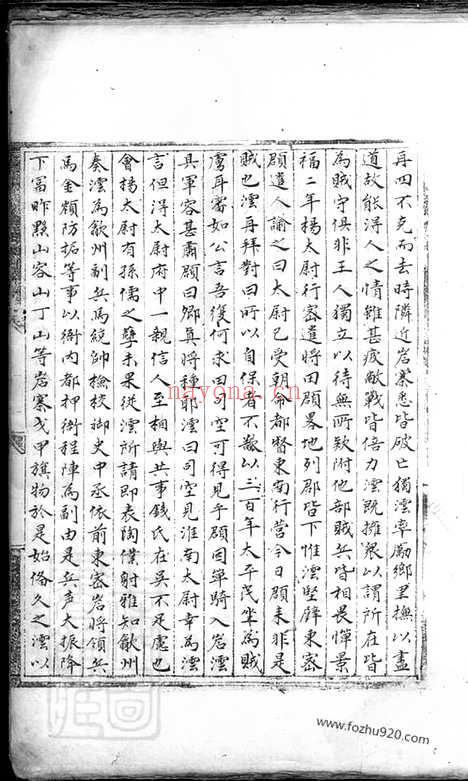 再四不克而去時隣近岩寨悉皆破亡獨澐率勵鄉里撫以盡
道故能得人之情雖甚疲敵戰皆倍力澐既擁衆以謂所在皆
為賊守俱非王人獨立以待無所欵附他部賊兵皆相畏憚景
福二年楊太尉行密遣將田頵畧地列郡皆下惟澐堅壁東密
頵遣人諭之曰太尉已受朝命都督東南行營今日頵来非是
賊也澐再拜對曰所以自保者不敢以三百年太平茂坐為賊
虜耳審如公言吾復何求曰司空可得見乎頵因單騎入岩澐
具軍容甚肅頵曰卿真將種耶澐曰司空見淮南太尉幸為澐
言但得太尉府中一親信人至相與共事錢氏在吳不足慮也
會楊太尉有孫儒之孽未果從澐所請即表陶僕射雅知歙州
奏澐為歙州副兵馬統帥檢校御史中丞依前東密岩將領兵
馬金額防拓等事以衙内都押衙程陣為副由是兵声大振降
下富昨黟山容山丁山等岩寨戈甲旗物於是始俻久之澐以
nayona.cn
www.fozhu920.com